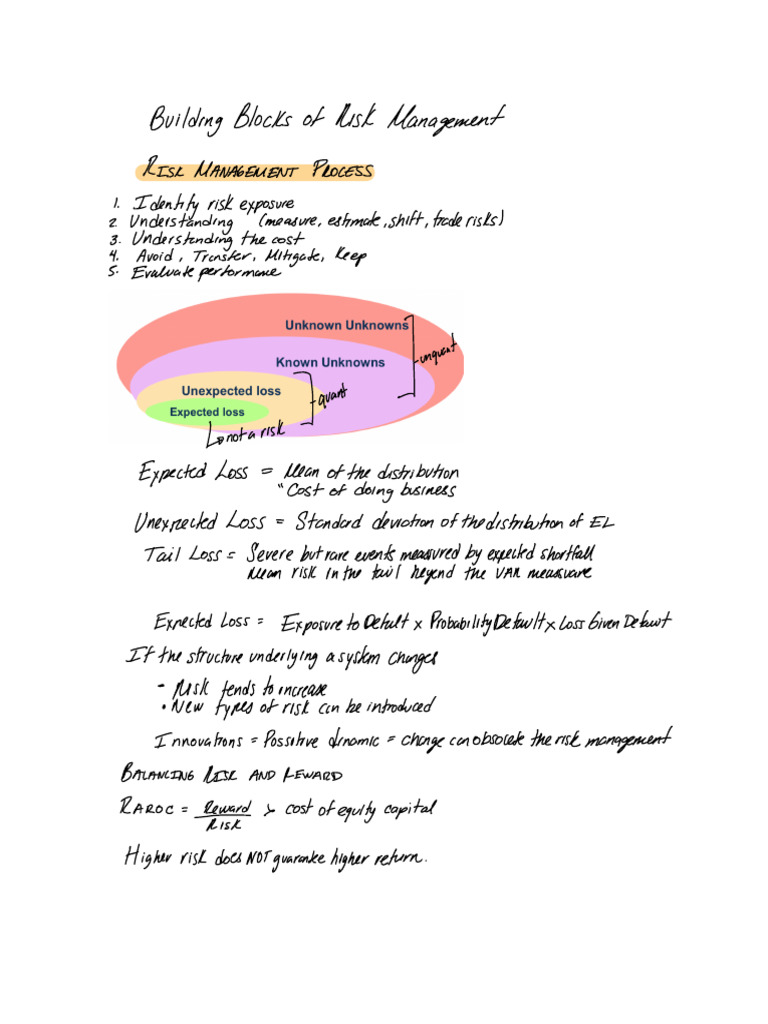 Building Blocks of Risk Management
RISK MANAGEMENT PROCESS
1. Identify risk exposure
2. Understanding (measure, estimate, shift, trade risks)
3. Understanding the cost
4. Avoid, Transfer, Mitigate, Keep
5. Evaluate performance
Unknown Unknowns
unquant
Known Unknowns
Unexpected loss
quant
Expected loss
not a risk
Expected Loss = Mean of the distribution
"Cost of doing business
Unexpected Loss = Standard deviation of the distribution of EL
Tail Loss = Severe but rare events measured by expected shortfall
Mean risk in the tail beyond the VAR measure
Expected Loss = Exposure to Default x Probability Default x Loss Given Default
If the structure underlying a system changes
- Risk tends to increase
• New types of risk can be introduced
Innovations = Possitive dynamic = change can obsolete the risk management
BALANCING RISK AND REWARD
RAROC = Reward / Risk > cost of equity capital
Higher risk does NOT guarantee higher return.